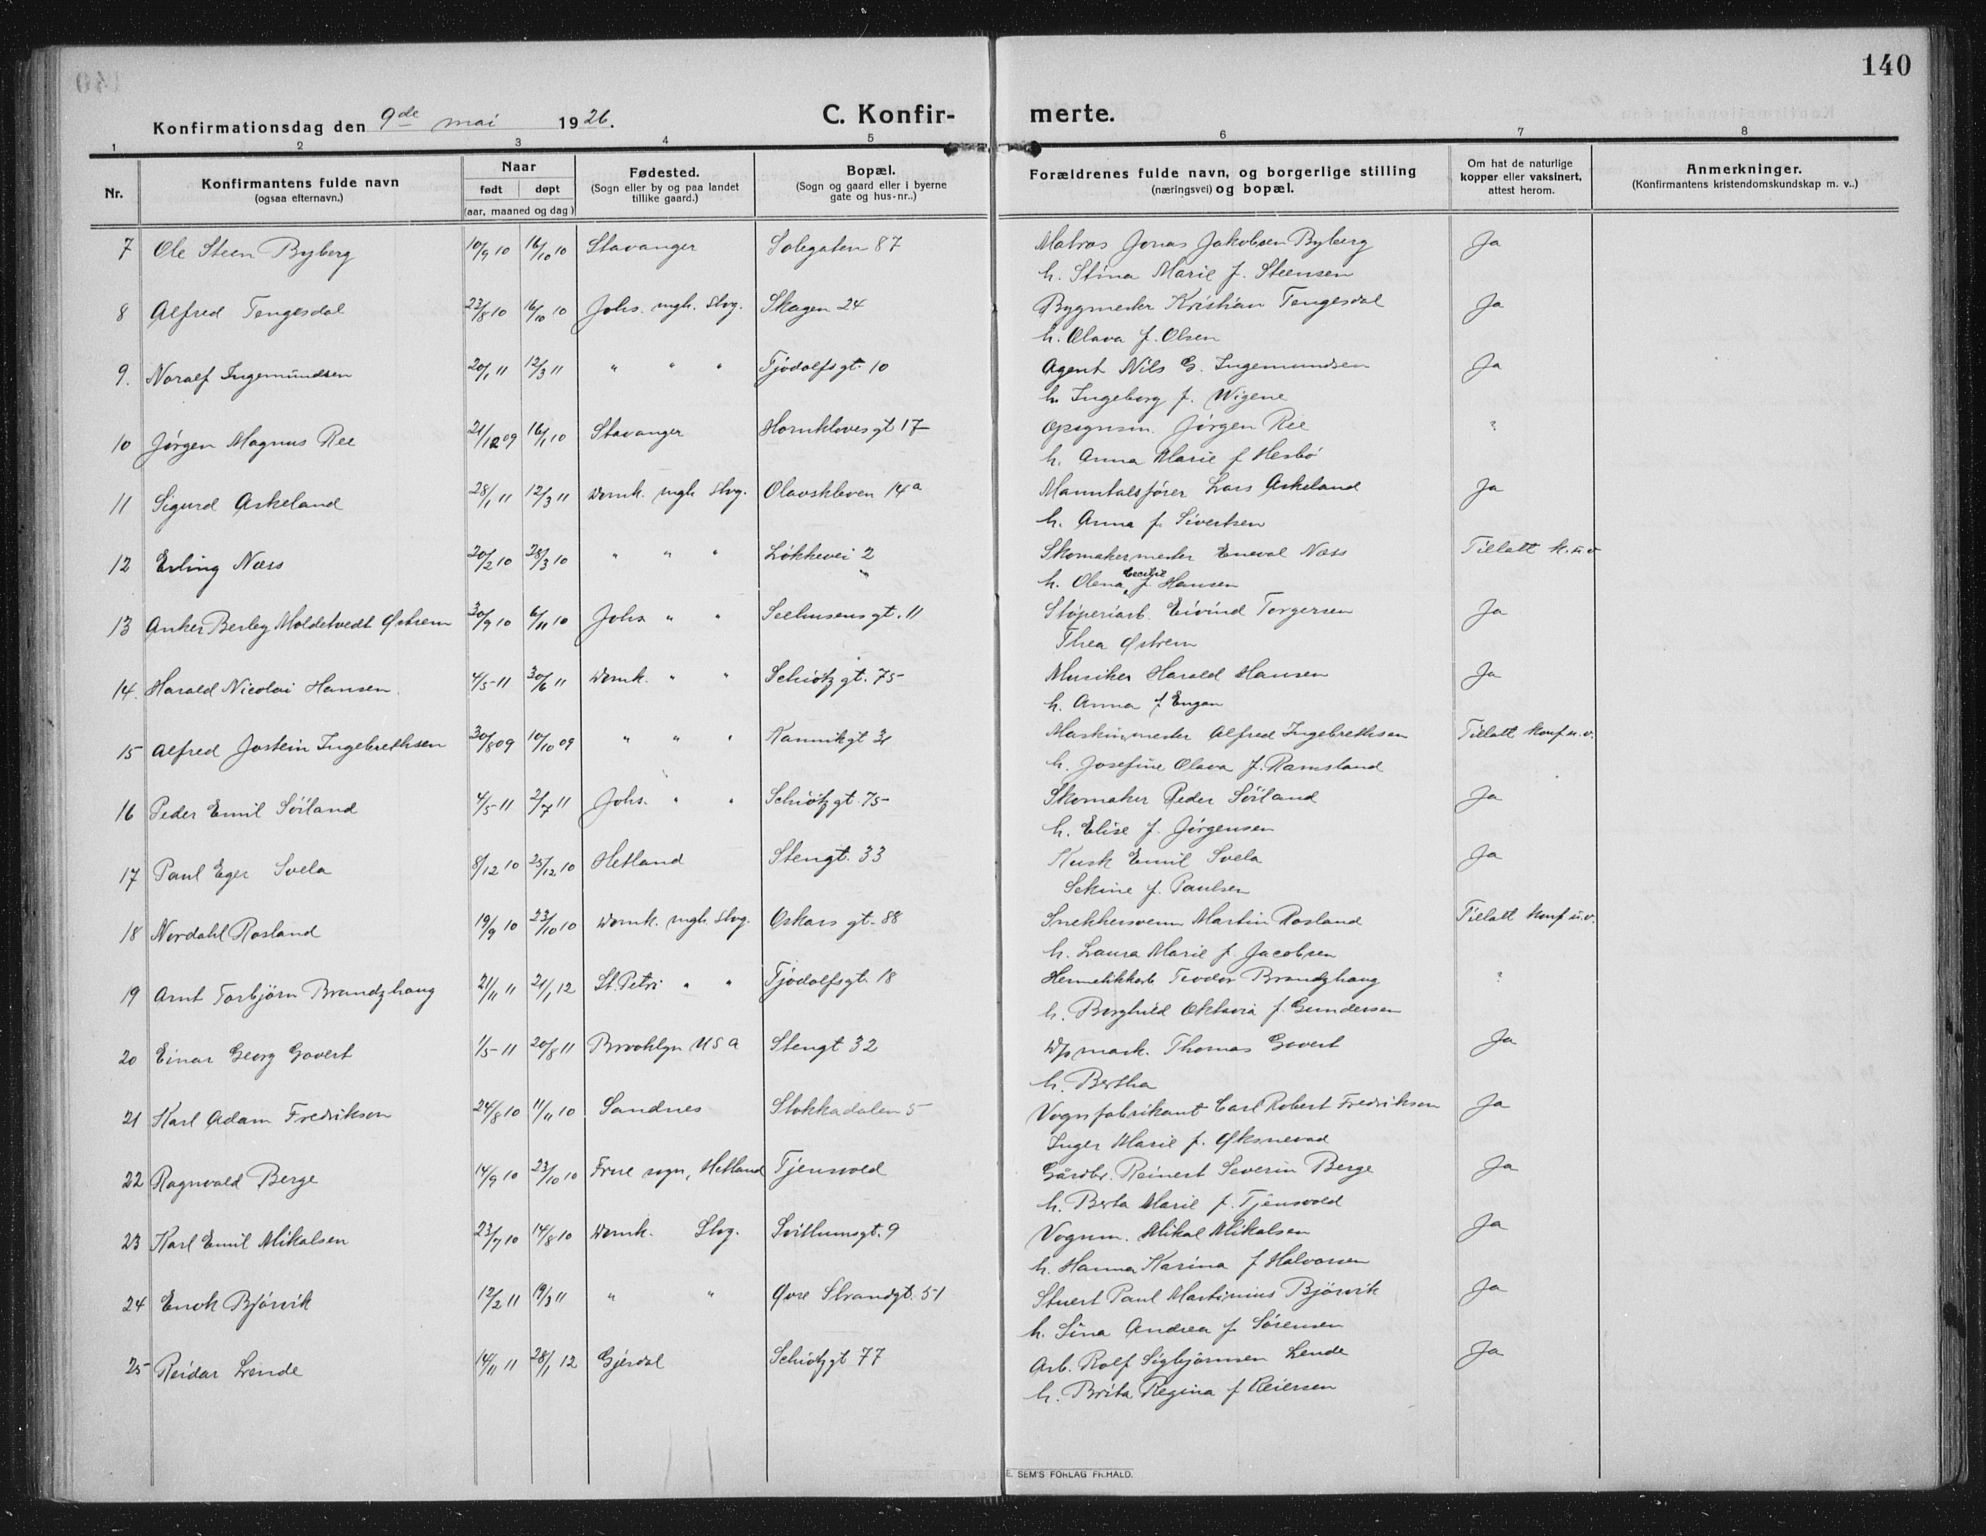 140
Konfirmationsdag den 9de mai 1926.
C. Konfirmerte.
1 2 3 4 5 6 7 8
Nr.
Konfirmantens fulde navn
(ogsaa efternavn.)
Naar
født døpt
(aar, maaned og dag)
Fødested.
(Sogn eller by og paa landet
tillike gaard.)
Bopæl.
(Sogn og gaard eller i byerne
gate og hus-nr..)
Forældrenes fulde navn, og borgerlige stilling
(næringsvei) og bopæl.
Om hat de naturlige
kopper eller vaksinert,
attest herom.
Anmerkninger.
(Konfirmantens kristendomskundskap m. v..)
7 Ole Steen Byberg 10/9 10 16/10 10 Stavanger Solegaten 87 Matros Jonas Jakobsen Byberg Ja
h. Stina Marie f. Steensen
8 Alfred Tengesdal 23/8 10 16/10 10 Johs. mgh. Stvg. Skagen 24 Bygmester Kristian Tengesdal Ja
h. Olava f. Olsen
9. Noralf Ingemundsen 20/1 11 12/3 11 " " " Tjodolfsgt. 10 Agent Nils G. Ingemundsen Ja
h. Ingeborg f. Wigene
10 Jørgen Magnus Ree 21/12 09 16/1 10 Stavanger Hornklovesgt 17 Opsynsm. Jørgen Ree ?
h. Anna Marie f Hesbø
11 Sigurd Askeland 28/1 11 12/3 11 Domk. mgh. Stvg. Olavskleven 14a Manntalsfører Lars Askeland Ja
h. Anna f. Sivertsen
12 Erling Næss 20/2 10 28/3 10 " " " Løkkevei 2 Skomakermester Eneval Næss Tillatt k. u. v
h. Olena Cecilie f. Hansen
13 Anker Berley Moldetvedt Østrem 30/9 10 6/11 10 Johs " " Seehusensgt. 11 Støperiarb. Eivind Torgersen Ja
Thea Østrem
14. Harald Nicolai Hansen. 4/5 11 30/6 11 Domk. " " Schiøtzgt. 75 Musiker Harald Hansen Ja
h. Anna f Engan
15 Alfred Jostein Ingebrethsen 30/8 09 10/10 09 " " " Kannikgt 31 Maskinmester Alfred Ingebrethsen Tillatt konf u. v.
h. Josefine Olava f. Ramsland
16 Peder Emil Söiland 4/5 11 2/7 11 Johs. " " Schiøtzgt. 75 Skomaker Peder Söiland Ja
h. Elise f. Jørgensen
17 Paul Eger Svela 8/12 10 25/12 10 Hetland Stengt. 33 Kusk Emil Svela Ja
Sekine f. Paulsen
18 Nordahl Rosland 19/9 10 23/10 10 Domk. mgh. Stvg. Oskars gt. 88 Snekkersvenn Martin Rosland Tillatt konf u. v.
h. Laura Marie f. Jacobsen
19 Arnt Torbjørn Brandzhaug 21/11 11 21/1 12 St. Petri " " Tjodolfsgt. 18 Hermetikkarb Teodor Brandzhaug ?
h. Borghild Oktavia f. Gundersen
20 Einar Georg Govert 1/5 11 20/8 11 Brooklyn USA Stengt 32 D/s mask. Thomas Govert Ja
h. Bertha
21 Karl Adam Fredriksen 24/8 10 11/11 10 Sandnes Stokkadalen 5 Vognfabrikant Carl Robert Fredriksen Ja
Inger Marie f. Øksnevad
22 Ragnvald Berge 14/9 10 23/10 10 Frue sogn, Hetland Tjensvold Gårdbr. Reinert Severin Berge Ja
h. Berta Marie f. Tjensvold
23 Karl Emil Mikalsen 23/7 10 14/8 10 Domk. Stvg. Svithunsgt. 9 Vognm. Mikal Mikalsen Ja
h. Hanna Karina f Halvorsen
24 Enok Bjørvik 12/2 11 19/3 11 " " Øvre Strandgt. 51 Stuert Paul Martinius Bjørvik Ja
h. Sina Andrea f. Sørensen
25 Reidar Lende 14/11 11 28/1 12 Gjesdal Schiøtzgt 77 Arb. Rolf Sigbjørnsen Lende Ja
h. Brita Regina f Reiersen
E. SEM'S FORLAG FR.HALD.